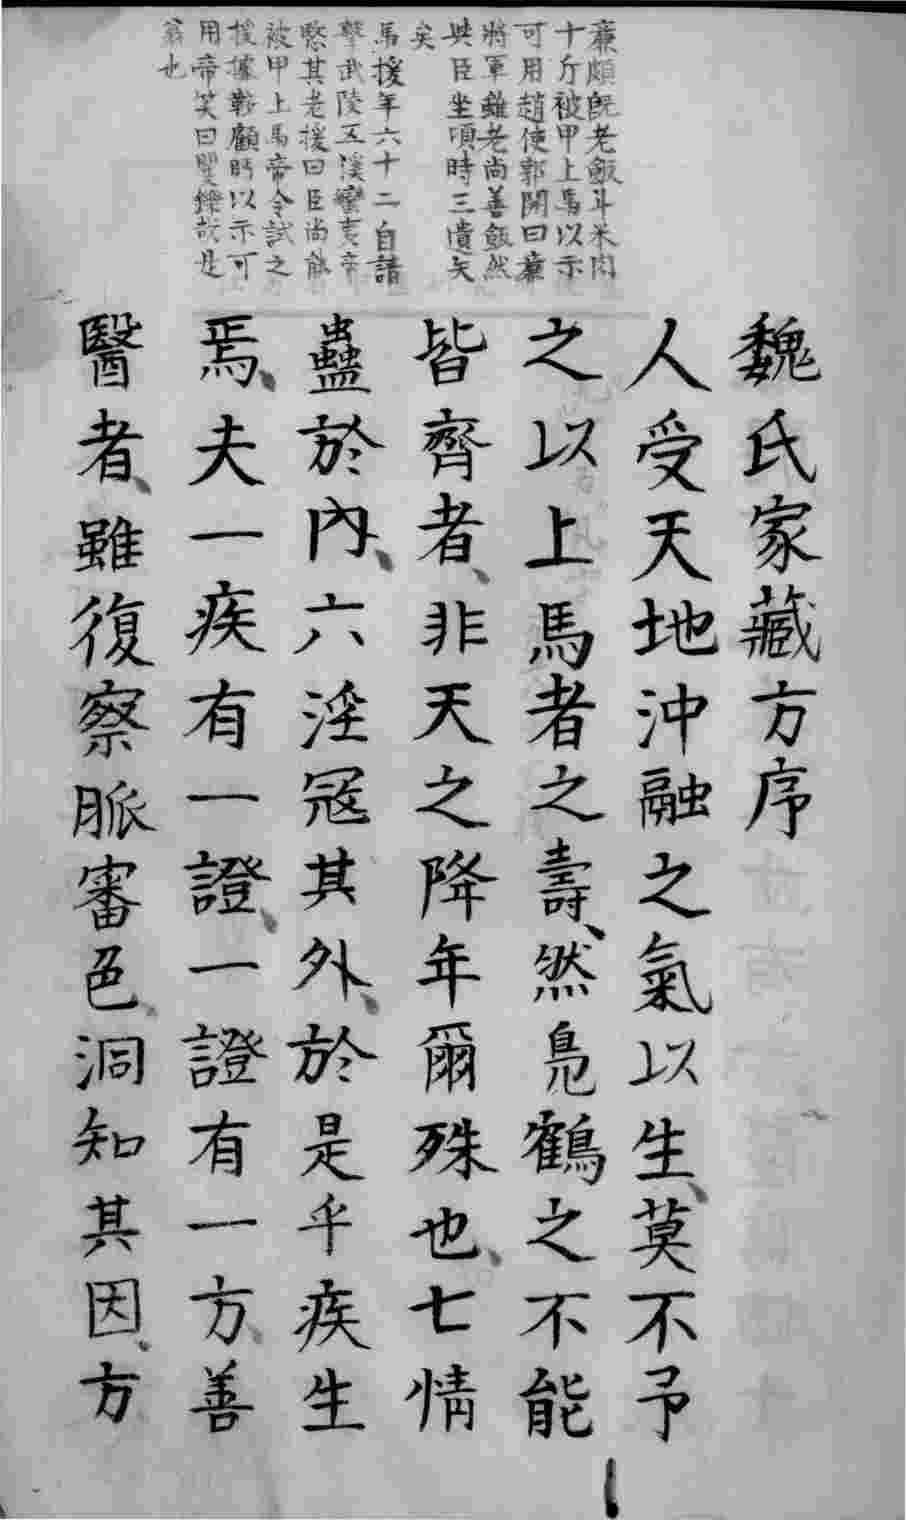 廉頗既老飯斗米肉
十斤被甲上馬以示
可用趙使郭開曰廉
將軍雖老尚善飯然
與臣坐頃時三遺矢
矣
馬援年六十二自請
擊武陵五溪蠻夷帝
愍其老援曰臣尚能
被甲上馬帝令試之
援據鞍顧眄以示可
用帝笑曰矍鑠哉是
翁也
魏氏家藏方序
人受天地沖融之氣以生、莫不予
之以上馬者之壽、然鳧鶴之不能
皆齊者、非天之降年爾殊也、七情
蠱於內、六淫冦其外、於是乎疾生
焉、夫一疾有一證、一證有一方、善
醫者、雖復察脈審色、洞知其因、方